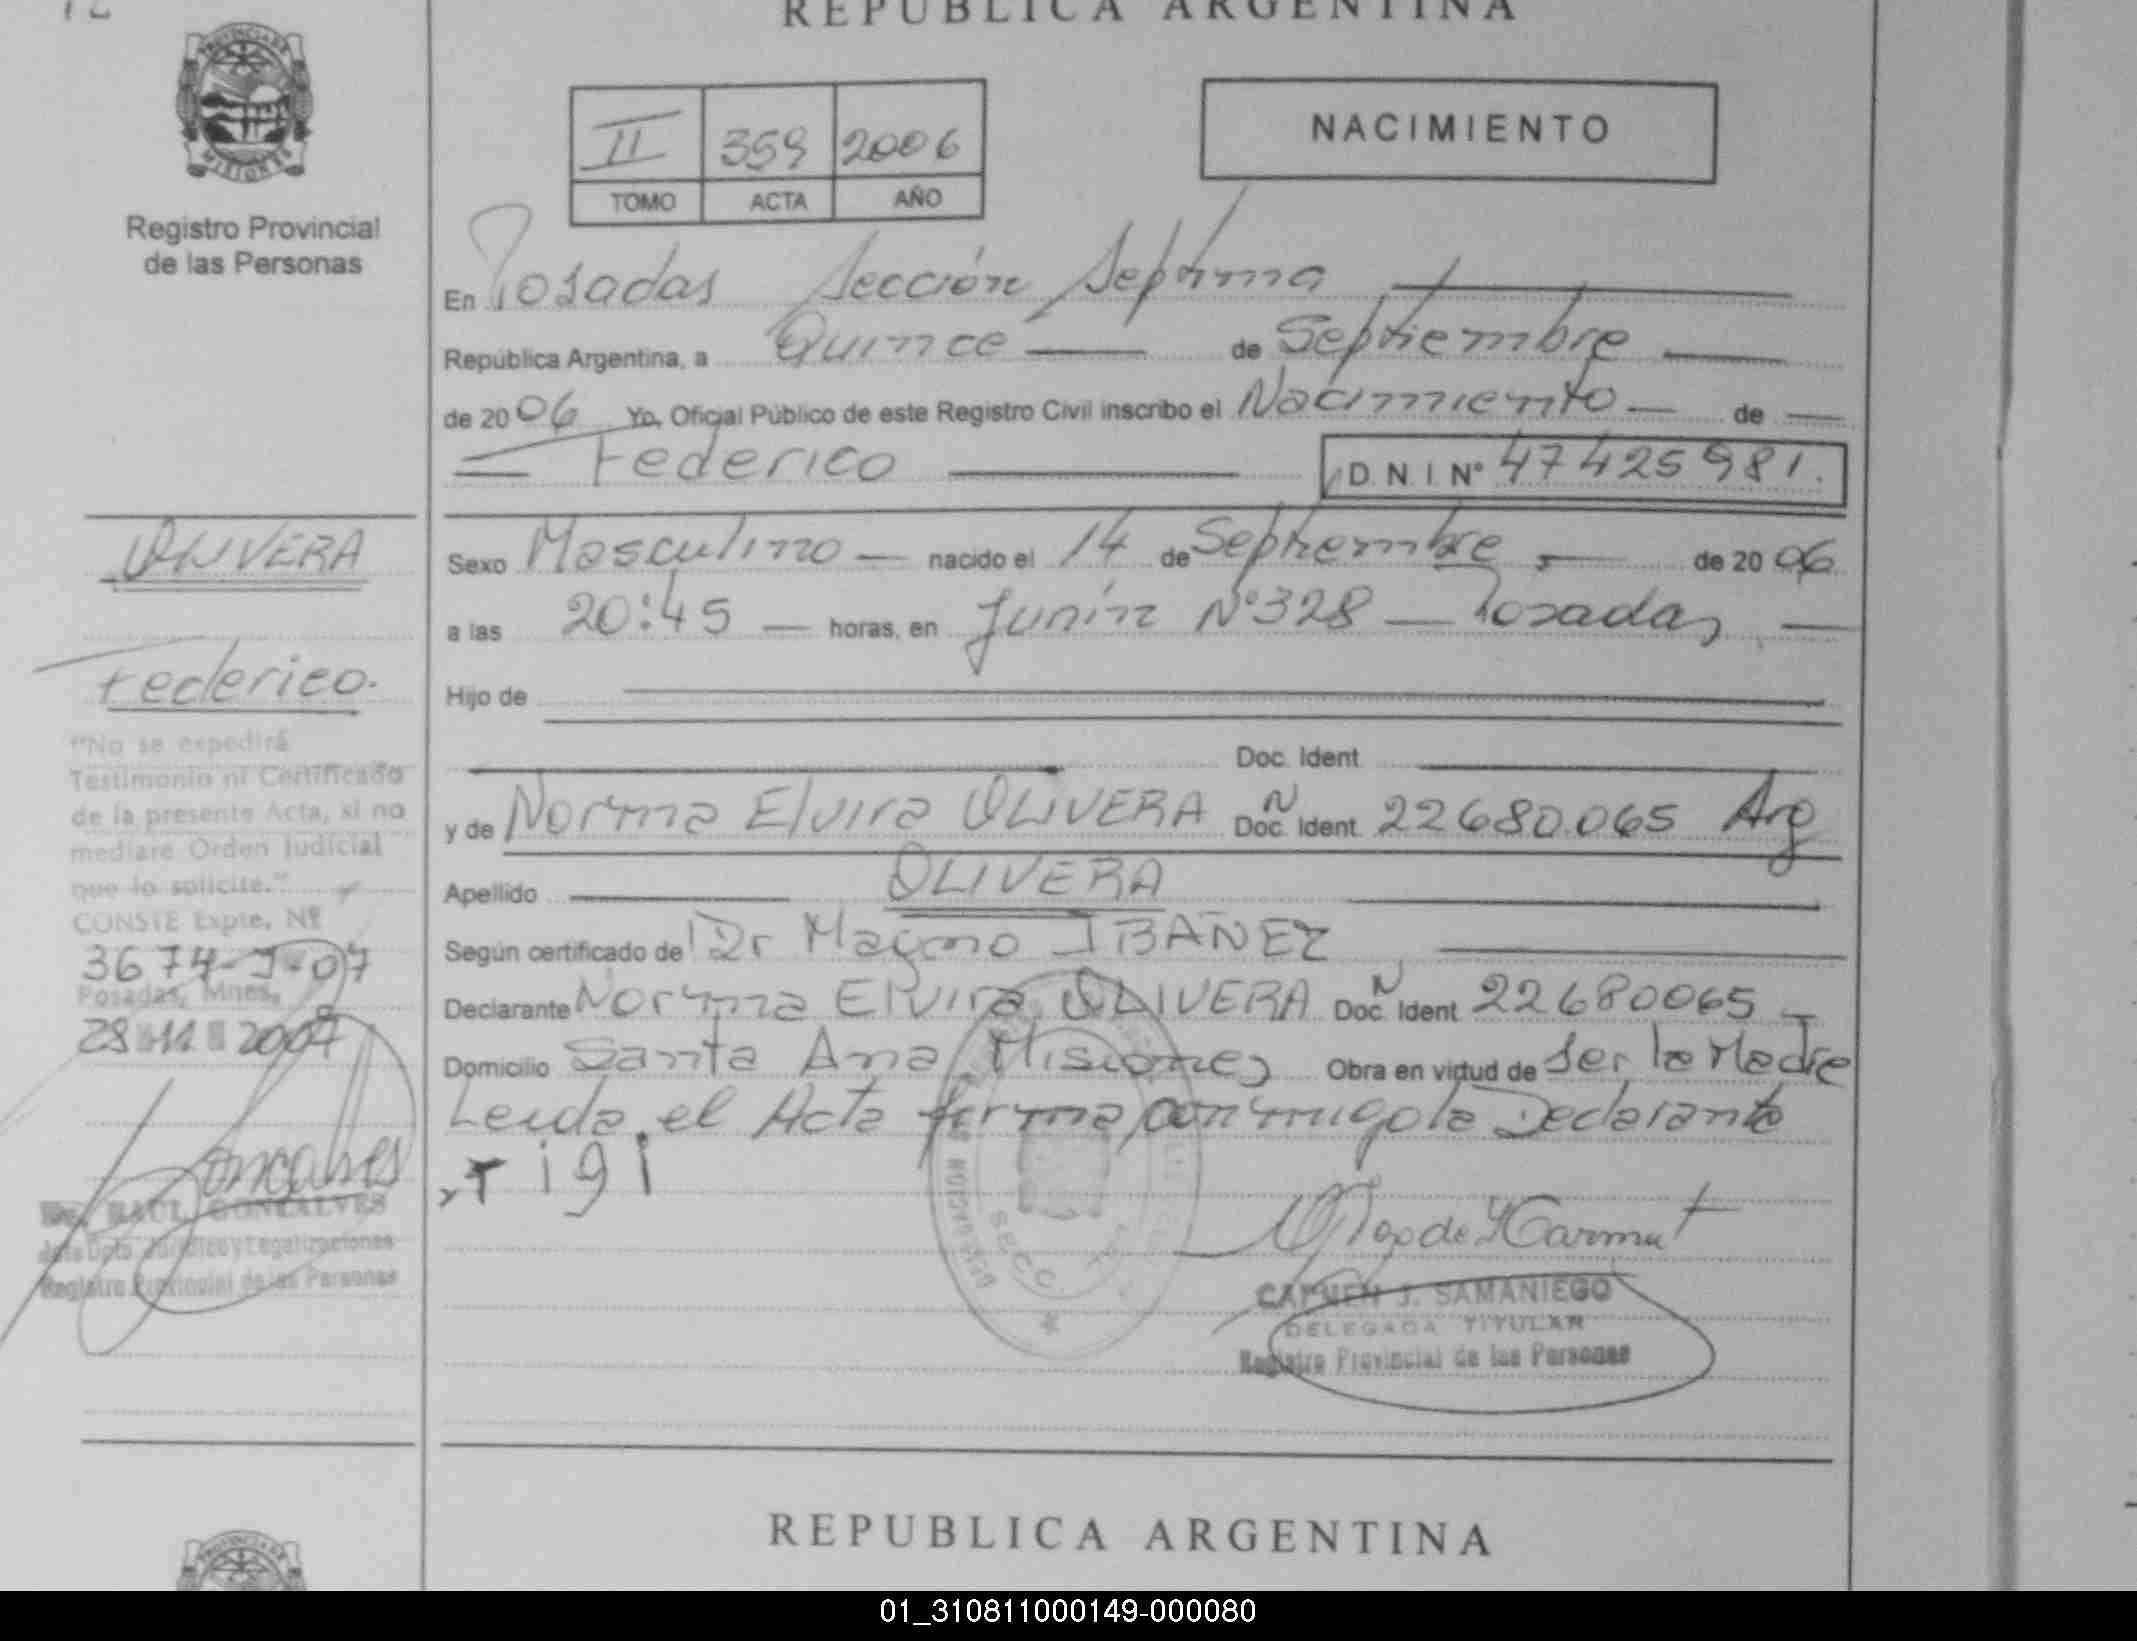 REPUBLICA ARGENTINA
PROVINCIA DE
MISIONES
Registro Provincial
de las Personas
II 359 2006
TOMO ACTA AÑO
NACIMIENTO
En Posadas Sección Septima
República Argentina, a Quince de Septiembre
de 2006 Yo, Oficial Público de este Registro Civil inscribo el Nacimiento de
Federico D.N.I. N° 47425981.
Sexo Masculino nacido el 14 de Septiembre de 2006
a las 20:45 horas, en Junín N°328 Posadas
Hijo de
Doc. Ident.
y de Norma Elvira OLIVERA N Doc. Ident. 22680.065 Arg
Apellido OLIVERA
Según certificado de Dr IBAÑEZ
Declarante Norma Elvira OLIVERA N Doc. Ident 22680065
Domicilio Santa Ana Misiones Obra en virtud de Ser la Madre
Leida el Acta firma conmigo la Declarante
OLIVERA
Federico.
"No se expedirá
Testimonio ni Certificado
de la presente Acta, si no
mediare Orden Judicial
que lo solicite."
CONSTE Expte. Nº
3674-J-07
Posadas, Mnes,
28 11 2007
Dr. RAUL GONCALVES
Jefe Dpto. Jurídico y Legalizaciones
Registro Provincial de las Personas
SECC.
CARMEN J. SAMANIEGO
DELEGADA TITULAR
Registro Provincial de las Personas
REPUBLICA ARGENTINA
01_310811000149-000080